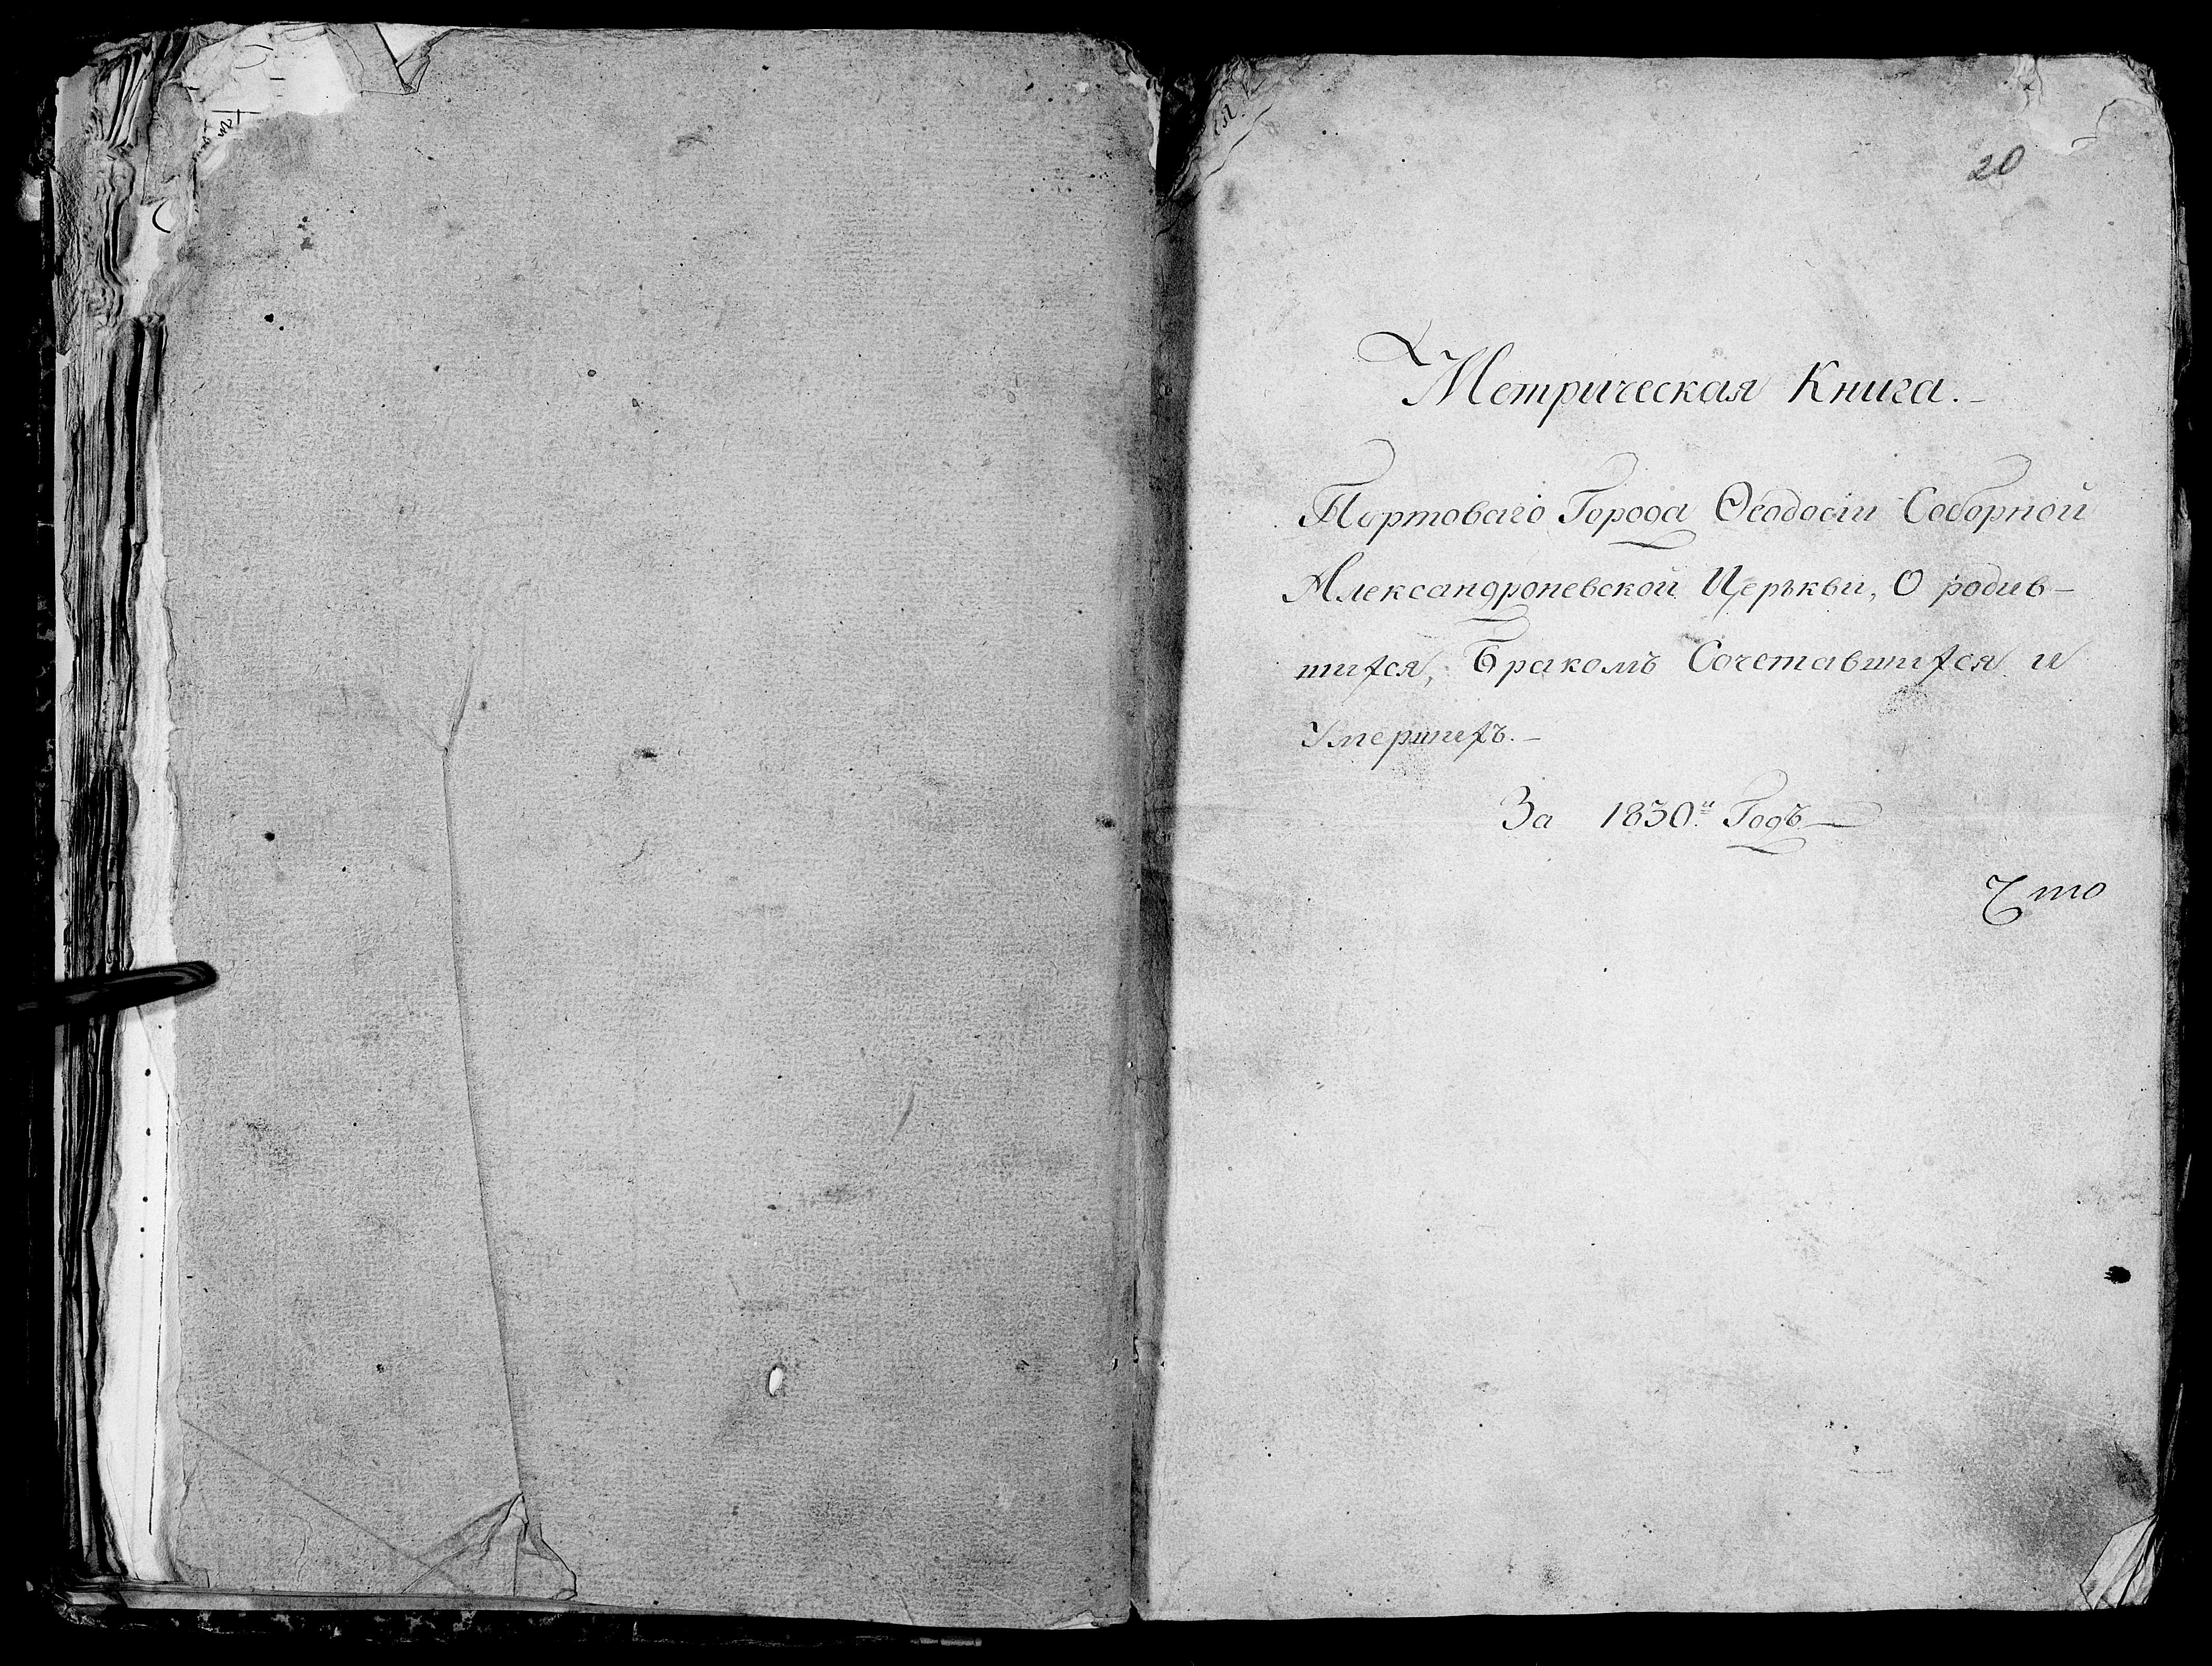 20
Метрическая Книга.-
Портоваго Города Ѳеодосіи Соборной
Александроневской Церькви, О родив-
шихся, Бракомъ Сочетавшихся и
Умершихъ.-
За 1830.й Годъ-
Что